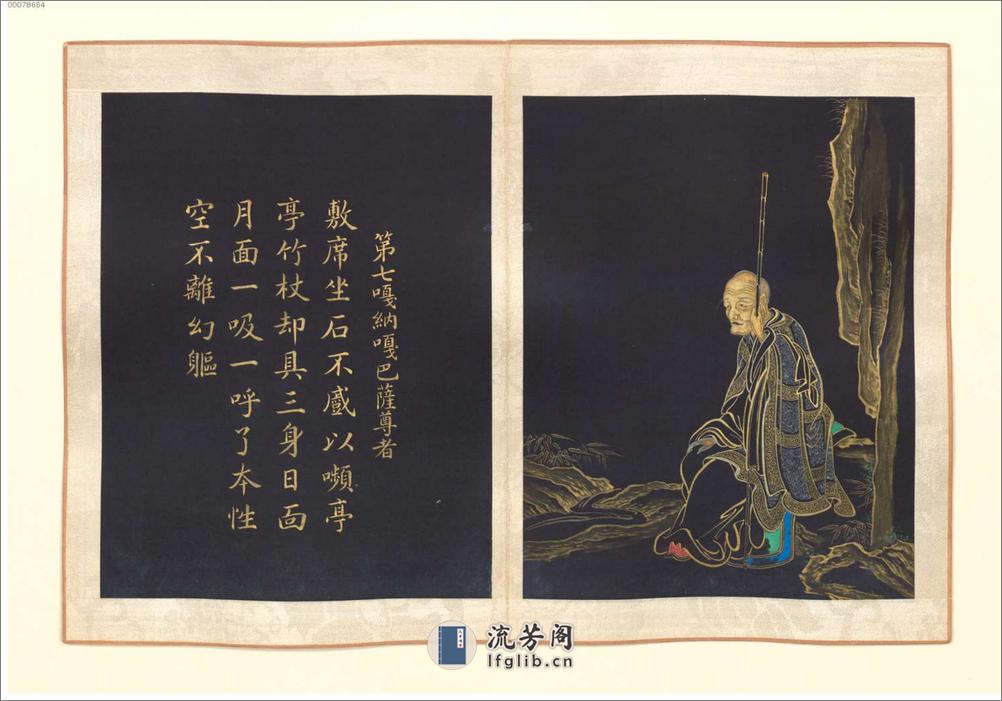 00078654
第七嘎納嘎巴薩尊者
敷席坐石不慼以嚬亭
亭竹杖却具三身日面
月面一吸一呼了本性
空不離幻軀
流芳阁
lfglib.cn